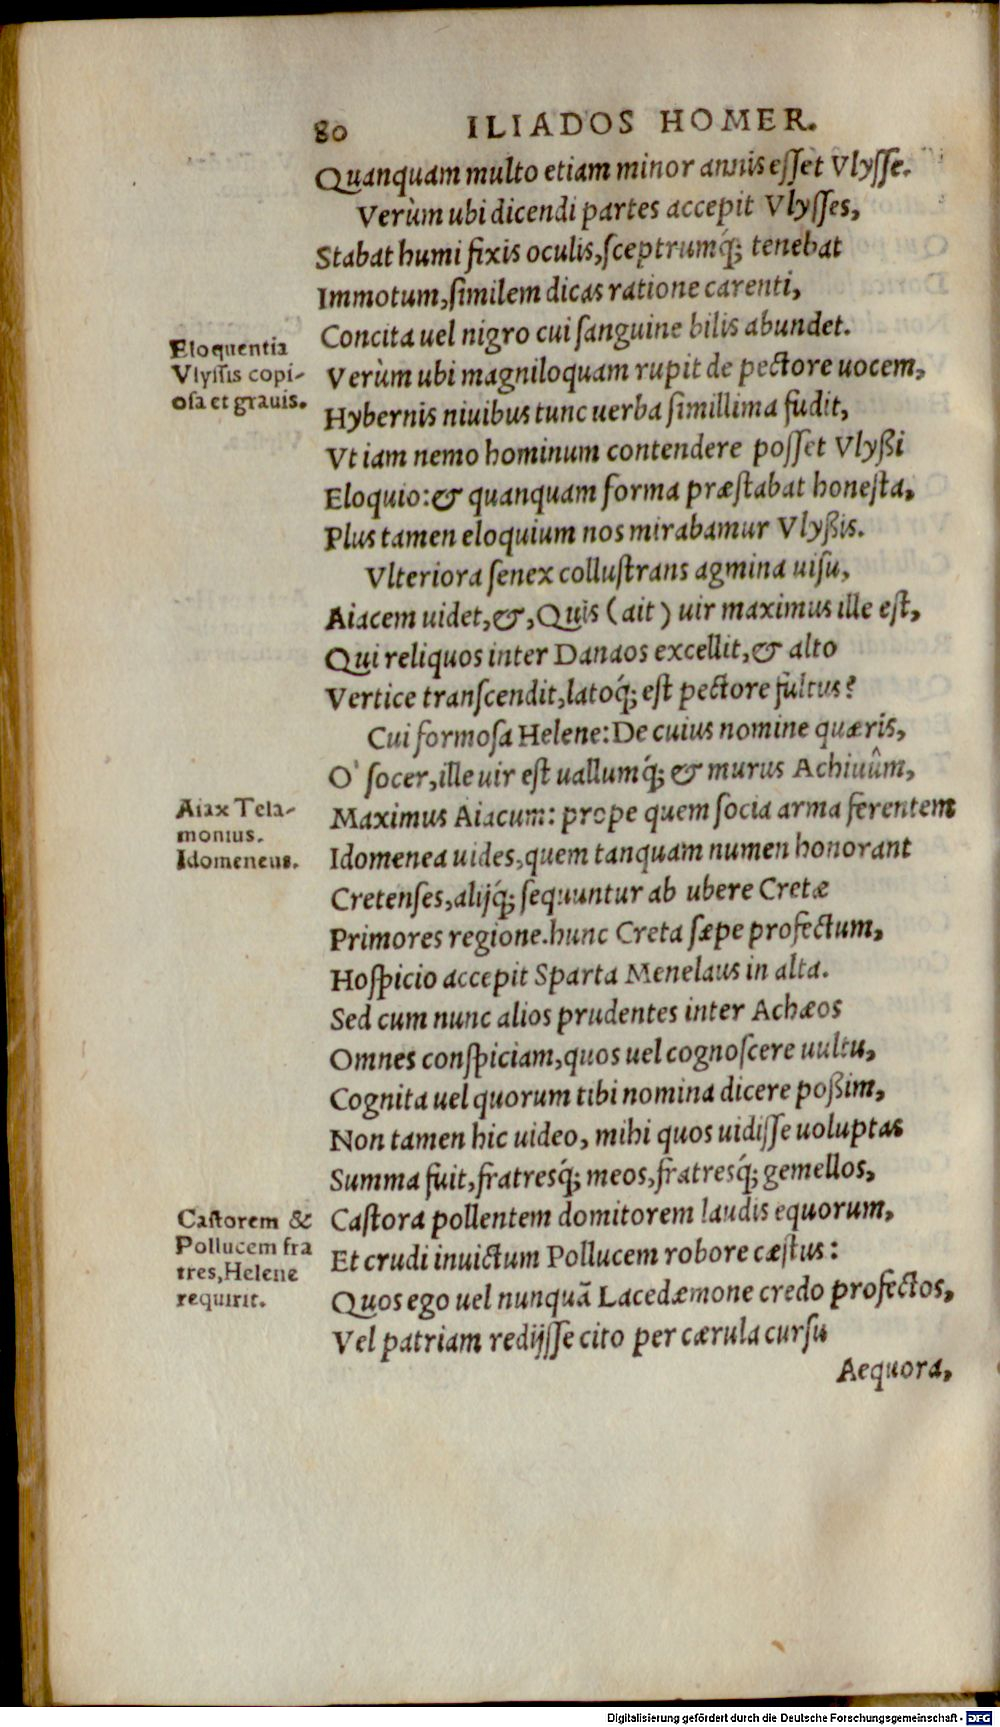 80 ILIADOS HOMER.
Quanquam multo etiam minor annis eſſet Vlyſſe.
Verùm ubi dicendi partes accepit Vlyſſes,
Stabat humi fixis oculis, ſceptrumq́; tenebat
Immotum, ſimilem dicas ratione carenti,
Concita uel nigro cui ſanguine bilis abundet.
Eloquentia
Vlyſſis copi-
oſa et grauis.
Verùm ubi magniloquam rupit de pectore uocem,
Hybernis niuibus tunc uerba ſimillima fudit,
Vt iam nemo hominum contendere poſſet Vlyßi
Eloquio: & quanquam forma præſtabat honeſta,
Plus tamen eloquium nos mirabamur Vlyßis.
Vlteriora ſenex colluſtrans agmina uiſu,
Aiacem uidet, &, Quis (ait) uir maximus ille eſt,
Qui reliquos inter Danaos excellit, & alto
Vertice tranſcendit, latoq́; eſt pectore fultus?
Cui formoſa Helene: De cuius nomine quæris,
O' ſocer, ille uir eſt uallumq́; & murus Achiuûm,
Aiax Tela-
monius.
Idomeneus.
Maximus Aiacum: prope quem ſocia arma ferentem
Idomenea uides, quem tanquam numen honorant
Cretenſes, alijq́; ſequuntur ab ubere Cretæ
Primores regione. hunc Creta ſæpe profectum,
Hoſpicio accepit Sparta Menelaus in alta.
Sed cum nunc alios prudentes inter Achæos
Omnes conſpiciam, quos uel cognoſcere uultu,
Cognita uel quorum tibi nomina dicere poßim,
Non tamen hic uideo, mihi quos uidiſſe uoluptas
Summa fuit, fratresq́; meos, fratresq́; gemellos,
Caſtorem &
Pollucem fra
tres, Helene
requirit.
Caſtora pollentem domitorem laudis equorum,
Et crudi inuictum Pollucem robore cæſtus:
Quos ego uel nunquã Lacedæmone credo profectos,
Vel patriam redijſſe cito per cærula curſu
Aequora,
Digitalisierung gefördert durch die Deutsche Forschungsgemeinschaft - DFG